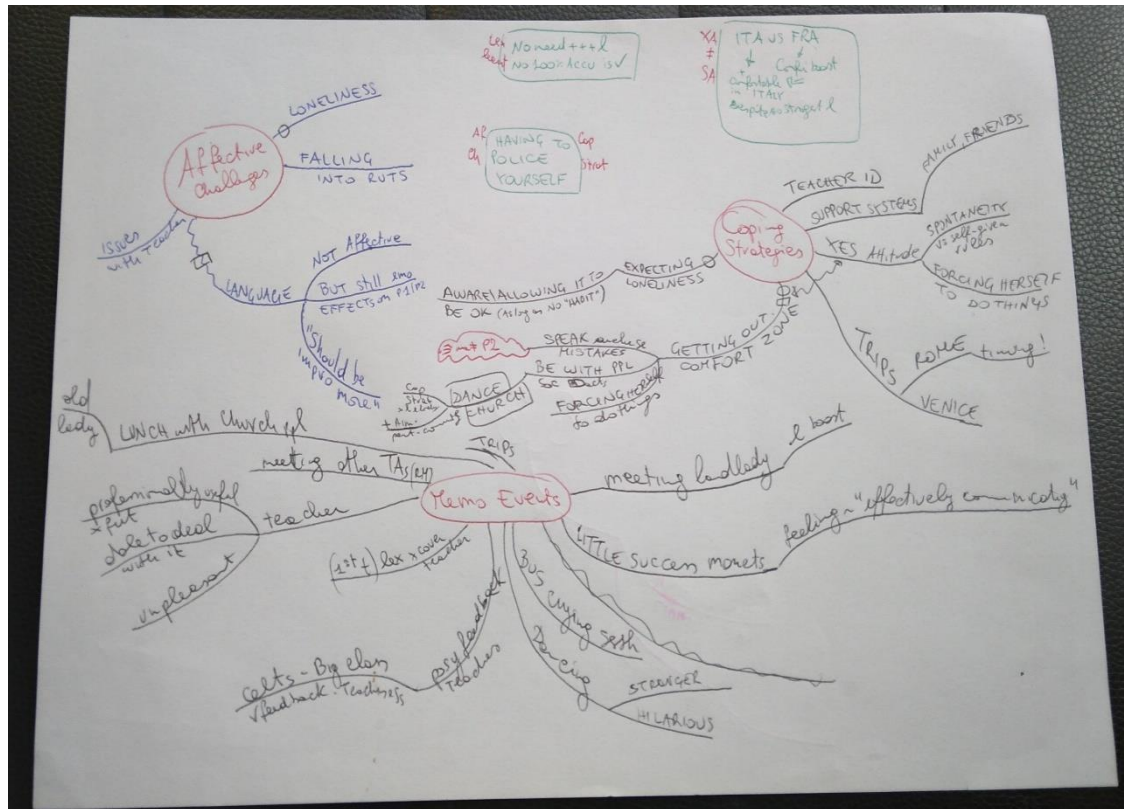 No need +++ l
XA
≠
SA
ITA vs FRA
Confi boost
comfortable
in ITALY
despite no strongest l
HAVING TO
POLICE
YOURSELF
Cop
Strat
Affective
Challenges
LONELINESS
FALLING
INTO RUTS
ISSUES
with Teacher
LANGUAGE
NOT Affective
But still emo
EFFECTS on P1/P2
"Should be
impro
more"
Coping
Strategies
TEACHER ID
SUPPORT SYSTEMS
FAMILY, FRIENDS
YES Attitude
SPONTANEITY
vs self-given
rules
FORCING HERSELF
TO DO THINGS
TRIPS
ROME
timing!
VENICE
EXPECTING
LONELINESS
AWARE/ALLOWING IT TO
BE OK (As long as NO "HABIT")
GETTING OUT
COMFORT ZONE
SPEAK
MISTAKES
BE WITH PPL
FORCING HERSELF
to do things
DANCE
CHURCH
Memo Events
TRIPS
LUNCH with Church ppl
old
lady
meeting other TAs
teacher
professionally useful
x fut
able to deal
with it
unpleasant
(1st t) lex x cover
teacher
posy feedback
teacher
celts - Big class
√ feedback. Teacheress
Dancing
STRONGER
HILARIOUS
BUS crying sesh
LITTLE SUCCESS moments
feeling "effectively communicating"
meeting landlady
l boost